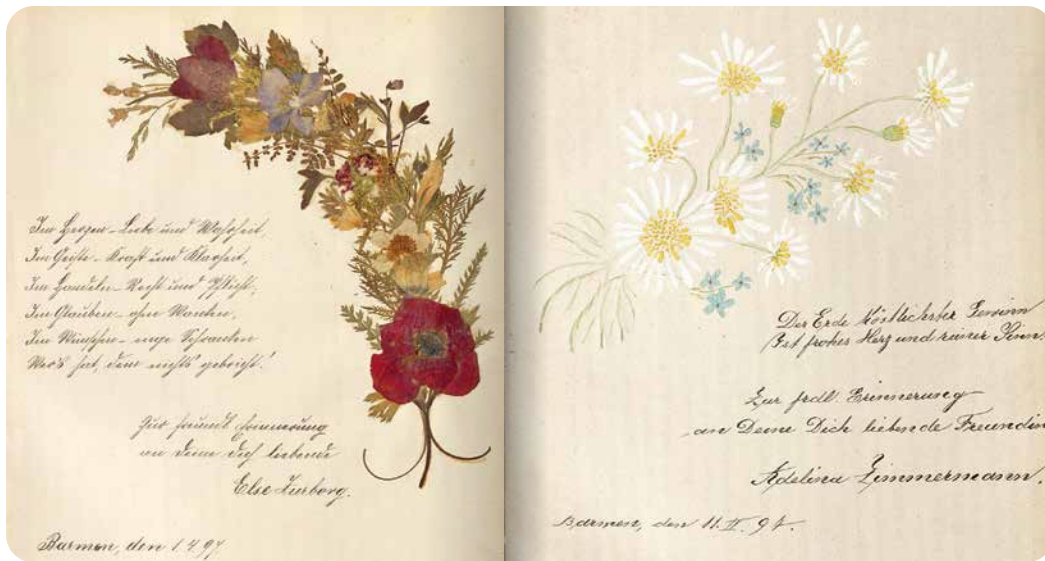 Im Herzen – Liebe und Wahrheit,
Im Geiste – Kraft und Klarheit,
Im Handeln – Recht und Pflicht,
Im Glauben – ohn Wanken,
Im Wünschen – enge Schranken
Wer's hat, dem nichts gebricht!
Zur freundl. Erinnerung
an deine dich liebende
Else Zurborg.
Barmen, den 1.4.97
Der Erde köstlichster Gewinn
Ist frohes Herz und reiner Sinn.
Zur frdl. Erinnerung
an Deine Dich liebende Freundin
Adelina Zimmermann.
Barmen, den 11. II. 97.